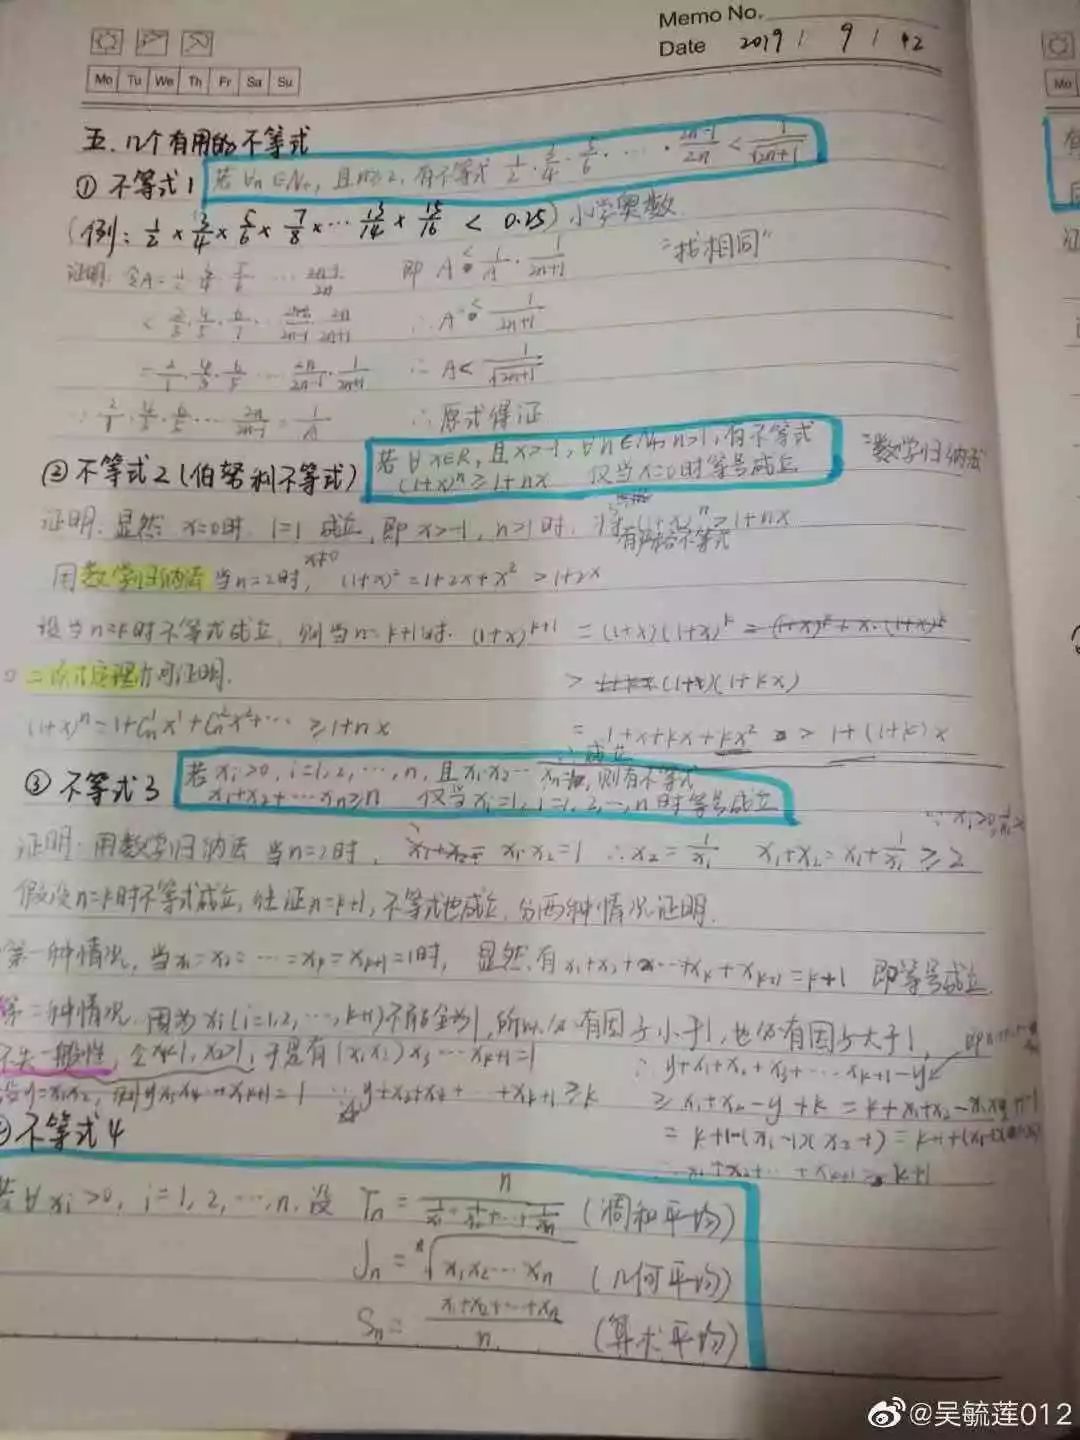 Memo No.
Date 2019 / 9 / 12
Mo Tu We Th Fr Sa Su
五、几个有用的不等式
① 不等式1 若∀n∈N+, 且n≥2, 有不等式 1/2·3/4·5/6·…·(2n-1)/2n < 1/√(2n+1)
(例: 1/2×3/4×5/6×7/8×…13/14×15/16 < 0.25) 小学奥数
"找相同"
证明: 令A=1/2·3/4·5/6 … (2n-1)/2n 即 A < 1/A · 1/(2n+1)
< 2/3·4/5·6/7 … 2n/(2n+1) ∴ A² < 1/(2n+1)
= 2/1·4/3·6/5 … 2n/(2n-1)·1/(2n+1) ∴ A< 1/√(2n+1)
∵ 2/1·4/3·6/5 … 2n/(2n-1) = 1/A ∴ 原式得证
② 不等式2 (伯努利不等式) 若∀x∈R, 且x>-1, ∀n∈N+, n>1, 有不等式
(1+x)ⁿ ≥ 1+nx 仅当x=0时等号成立
"数学归纳法"
证明: 显然 x=0时, 1=1 成立, 即 x>-1, n>1时, (1+x)ⁿ>1+nx
有严格不等式
x≠0
用数学归纳法 当n=2时, (1+x)²=1+2x+x² >1+2x
设当n=k时不等式成立, 则当n=k+1时, (1+x)^(k+1) = (1+x)(1+x)^k
二项式定理亦可证明. > (1+x)(1+kx)
(1+x)ⁿ=1+Cₙ¹x¹+Cₙ²x²+… ≥1+nx = 1+x+kx+kx² > 1+(1+k)x
∴ 成立
③ 不等式3 若xᵢ>0, i=1,2,…,n, 且x₁·x₂… 则有不等式
x₁+x₂+…xₙ≥n 仅当xᵢ=1, i=1,2,…,n时等号成立
证明: 用数学归纳法 当n=2时, x₁·x₂=1 ∴x₂=1/x₁ x₁+x₂=x₁+1/x₁≥2
假设n=k时不等式成立, 往证n=k+1, 不等式也成立, 分两种情况证明.
第一种情况, 当x₁=x₂=…=xₖ=xₖ₊₁=1时, 显然有x₁+x₂+…+xₖ+xₖ₊₁=k+1 即等号成立.
第二种情况, 因为xᵢ(i=1,2,…,k+1)不能全为1, 所以必有因子小于1, 也必有因子大于1,
不失一般性, 令x₁<1, x₂>1, 于是有(x₁x₂)x₃…xₖ₊₁=1
∴ y+x₁+x₂+x₃+…xₖ₊₁-y
设y=x₁x₂, 则yx₃x₄…xₖ₊₁=1 ∴ y+x₃+x₄+…+xₖ₊₁≥k
≥x₁+x₂-y+k = k+x₁+x₂-x₁x₂
= k+1-(x₁-1)(x₂-1)
∴ x₁+x₂+…+xₖ₊₁ ≥ k+1
不等式4
若∀xᵢ>0, i=1,2,…,n, 设 Tₙ = n/(1/x₁+1/x₂+…+1/xₙ) (调和平均)
Jₙ = ⁿ√(x₁x₂…xₙ) (几何平均)
Sₙ = (x₁+x₂+…+xₙ)/n (算术平均)
@吴毓莲012